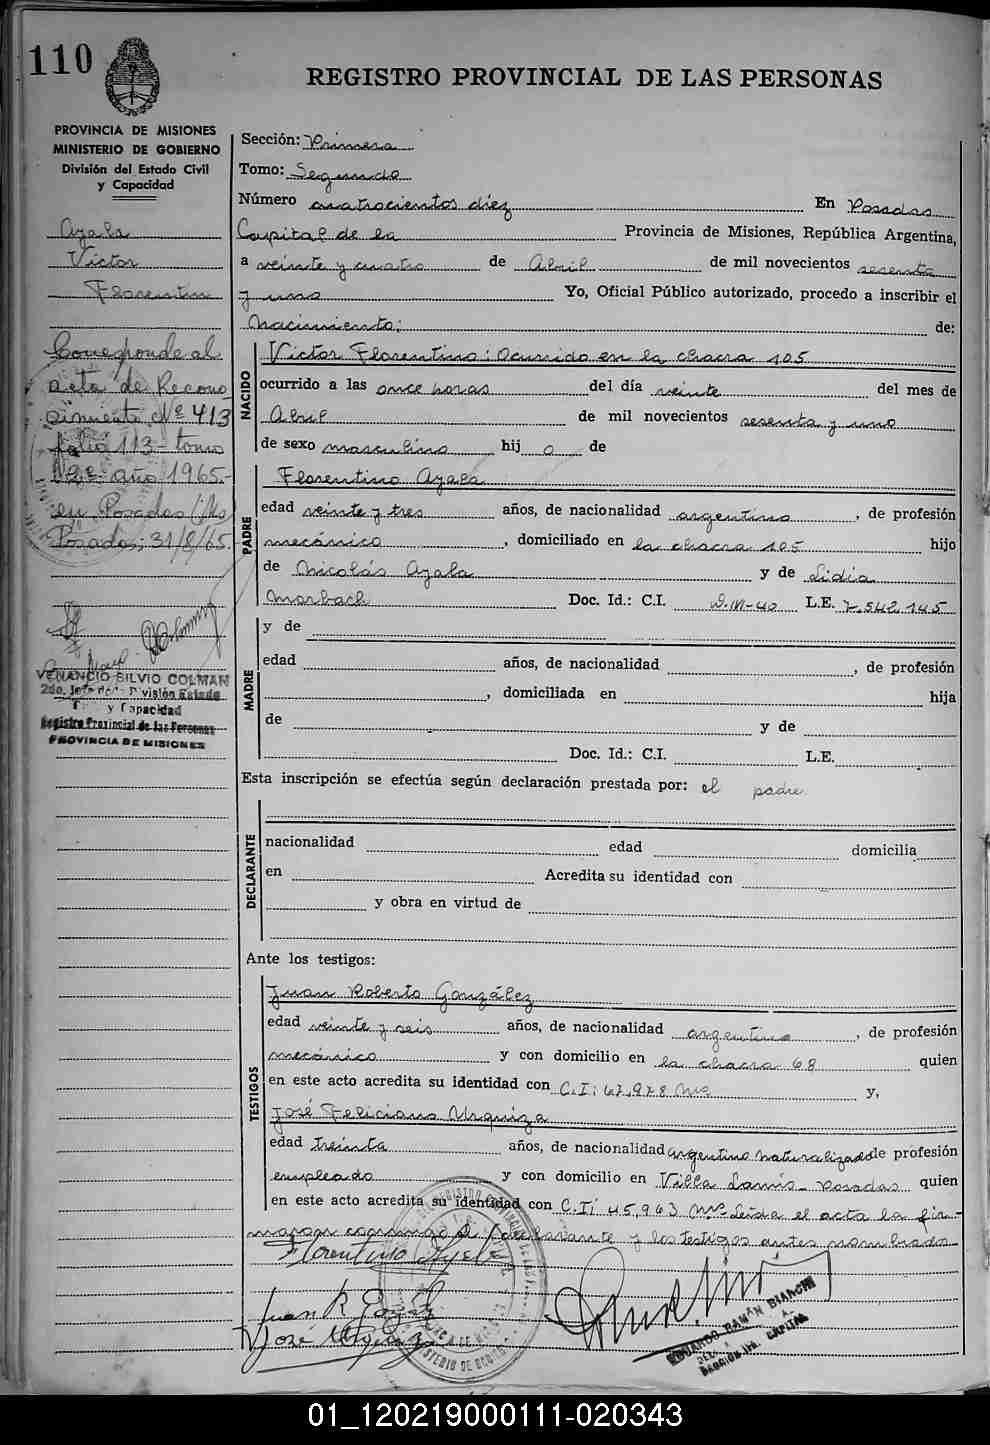 110
REGISTRO PROVINCIAL DE LAS PERSONAS
PROVINCIA DE MISIONES
MINISTERIO DE GOBIERNO
División del Estado Civil
y Capacidad
Ayala
Victor
Florentino
Corresponde al
acta de Recono
simiento Nº 413
folio 113 - tomo
2º año 1965.-
en Posadas
Posadas, 31/8/65.
VENANCIO SILVIO COLMAN
2do. Jefe de División Estado
y Capacidad
Registro Provincial de las Personas
PROVINCIA DE MISIONES
Sección: Primera
Tomo: Segundo
Número cuatrocientos diez En Posadas
Capital de la Provincia de Misiones, República Argentina,
a veinte y cuatro de Abril de mil novecientos sesenta
y uno Yo, Oficial Público autorizado, procedo a inscribir el
Nacimiento: de:
NACIDO
Victor Florentino: Ocurrido en la chacra 105
ocurrido a las once horas del día veinte del mes de
Abril de mil novecientos sesenta y uno
de sexo masculino hij o de
PADRE
Florentino Ayala
edad veinte y tres años, de nacionalidad argentino, de profesión
mecánico, domiciliado en la chacra 105 hijo
de Nicolás Ayala y de Lidia
Marbach Doc. Id.: C.I. D.M-40 L.E. 7.542.145
MADRE
y de
edad años, de nacionalidad , de profesión
, domiciliada en hija
de y de
Doc. Id.: C.I. L.E.
Esta inscripción se efectúa según declaración prestada por: el padre
DECLARANTE
nacionalidad edad domicilia
en Acredita su identidad con
y obra en virtud de
Ante los testigos:
TESTIGOS
Juan Roberto González
edad veinte y seis años, de nacionalidad argentino, de profesión
mecánico y con domicilio en la chacra 68 quien
en este acto acredita su identidad con C.I: 67.978 Ms y,
José Feliciano Urquiza
edad treinta años, de nacionalidad argentino naturalizado de profesión
empleado y con domicilio en Villa Lanús - Posadas quien
en este acto acredita su identidad con C.I: 45,963 Mns. Leída el acta la fir-
maron conmigo el declarante y los testigos antes nombrados.
Florentino Ayala
Juan R. González
José Urquiza
EDUARDO RAMÓN BIANCHI
SECCIÓN 1RA. CAPITAL
01_120219000111-020343